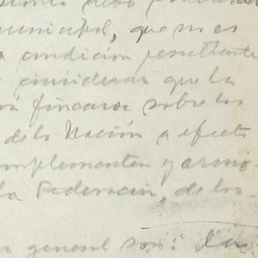 municipal, que no es
condición resultante
considerar que la
fincarse sobre los
de la Nación a efecto
complementen y armo
la Federación, de los
general son: Las